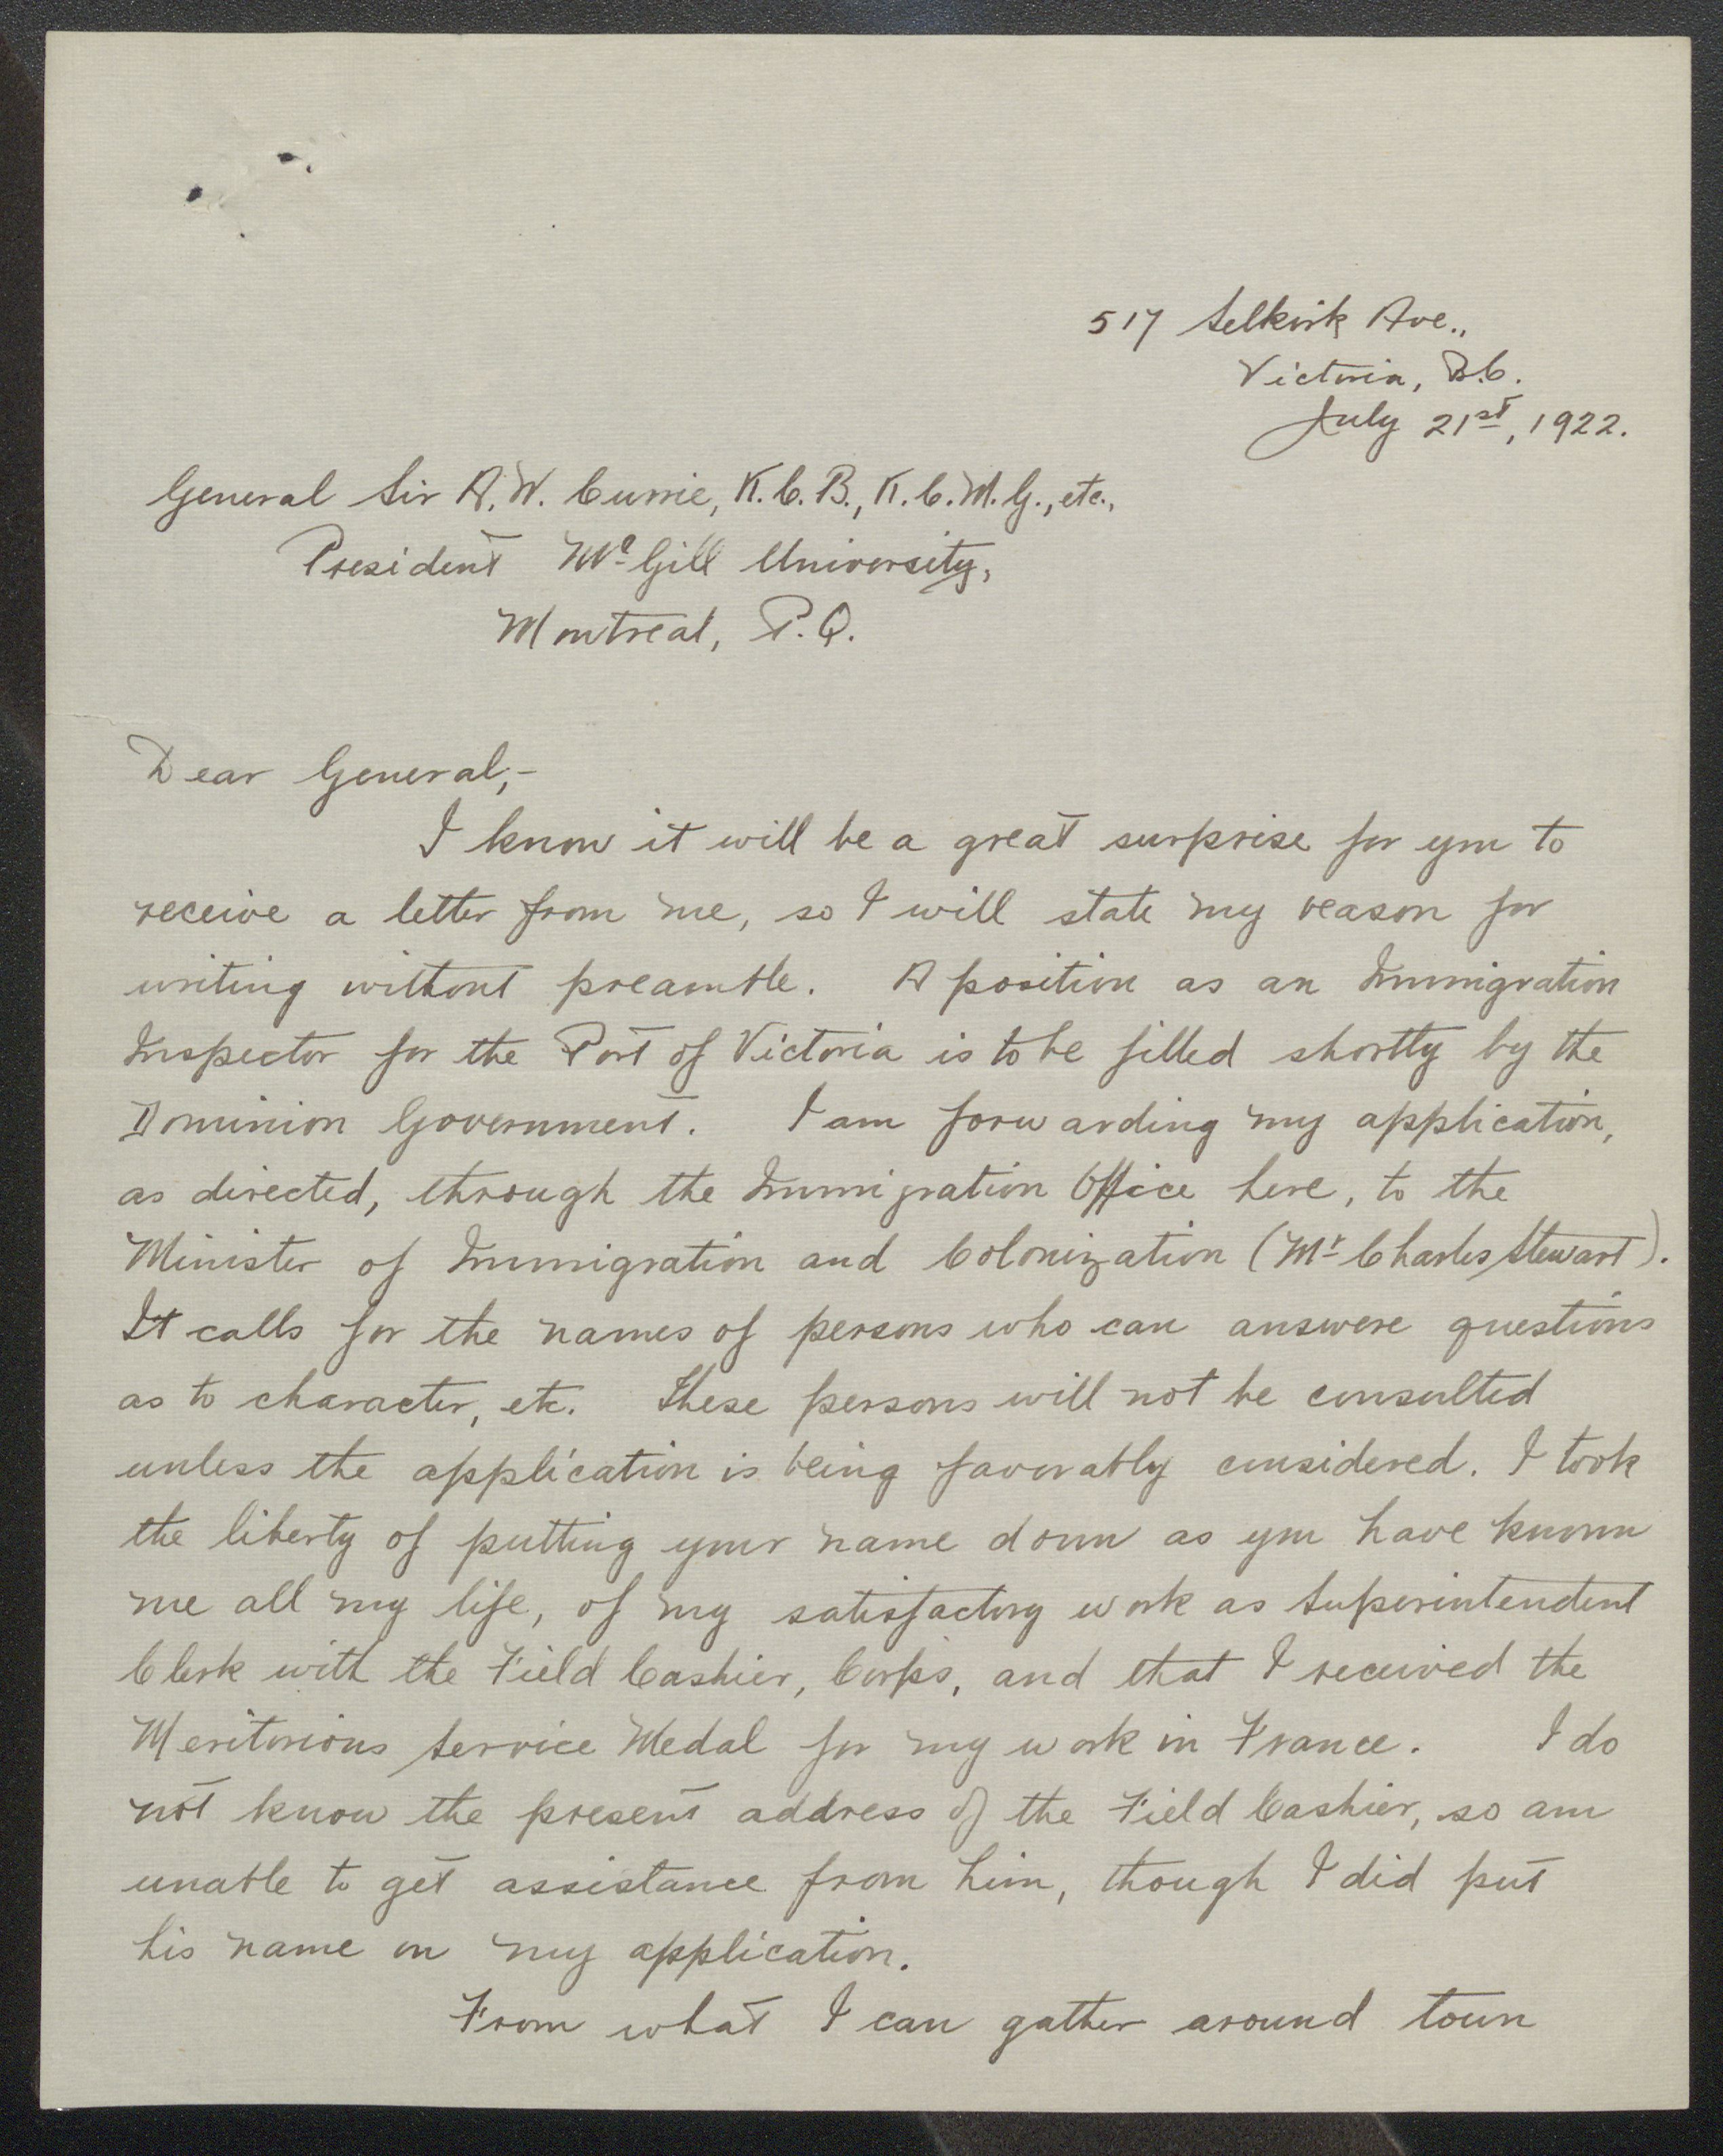 517 Selkirk Ave.,
Victoria, B.C.
July 21st, 1922.
General Sir A. W. Currie, K.C.B., K.C.M.G., etc.,
President McGill University,
Montreal, P.Q.
Dear General,-
I know it will be a great surprise for you to
receive a letter from me, so I will state my reason for
writing without preamble. A position as an Immigration
Inspector for the Port of Victoria is to be filled shortly by the
Dominion Government. I am forwarding my application,
as directed, through the Immigration Office here, to the
Minister of Immigration and Colonization (Mr Charles Stewart).
It calls for the names of persons who can answere questions
as to character, etc. These persons will not be consulted
unless the application is being favorably considered. I took
the liberty of putting your name down as you have known
me all my life, of my satisfactory work as Superintendent
Clerk with the Field Cashier, Corps, and that I received the
Meritorious Service Medal for my work in France. I do
not know the present address of the Field Cashier, so am
unable to get assistance from him, though I did put
his name on my application.
From what I can gather around town